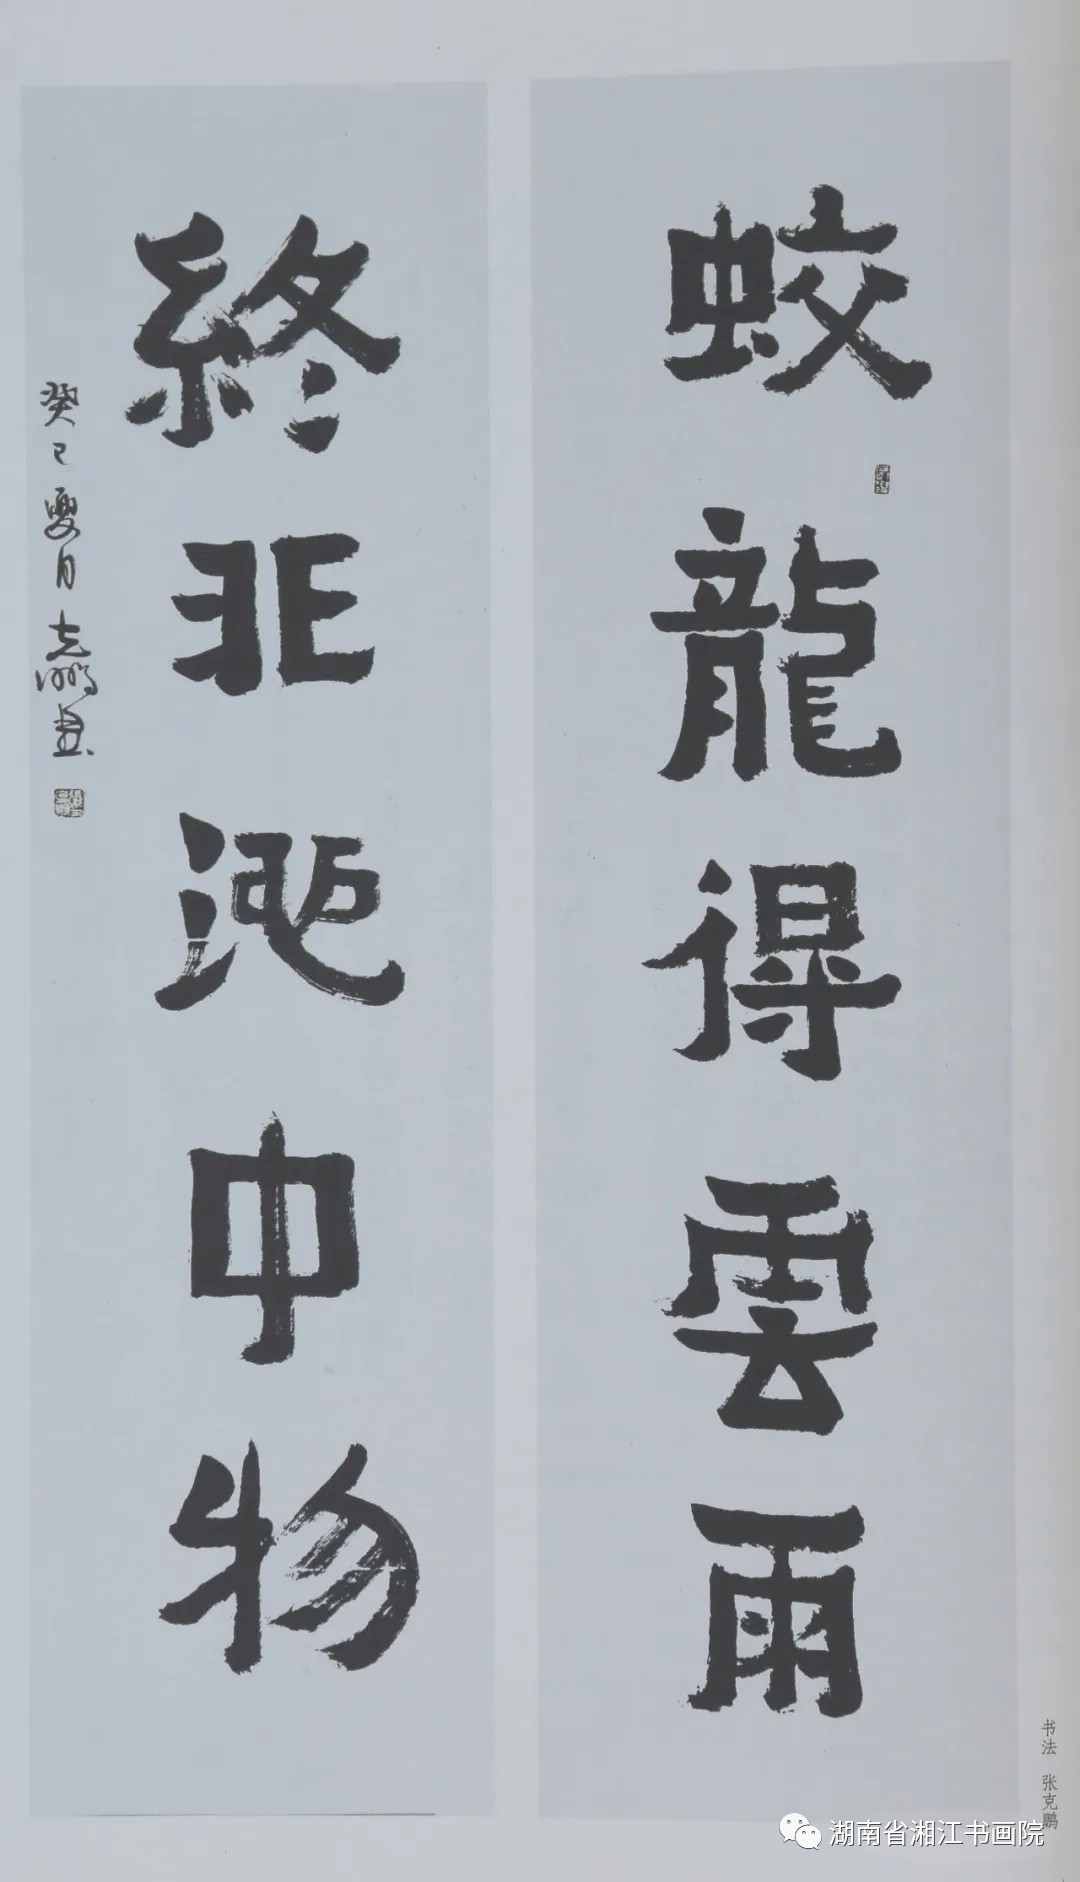 蛟龍得雲雨
終非池中物
癸巳夏月克鹏書
书法 张克鹏
湖南省湘江书画院